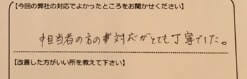 【今回の弊社の対応でよかったところをお聞かせください】
担当者の方の対応がとても丁寧でした。
【改善した方がいい所を教えて下さい】